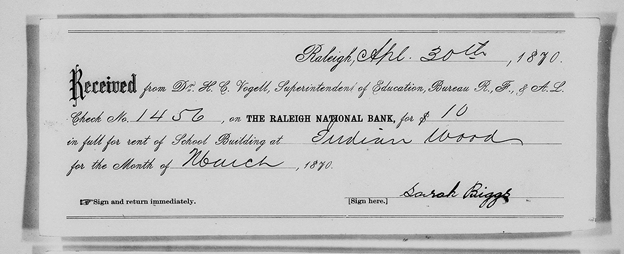 Raleigh, Apl. 30th, 1870.
Received from Dr. H. C. Vogell, Superintendent of Education, Bureau R., F., & A. L.
Check No. 1456, on THE RALEIGH NATIONAL BANK, for $ 10
in full for rent of School Building at Indian Wood
for the Month of March, 1870.
Sarah Biggs
☞Sign and return immediately. [Sign here.]